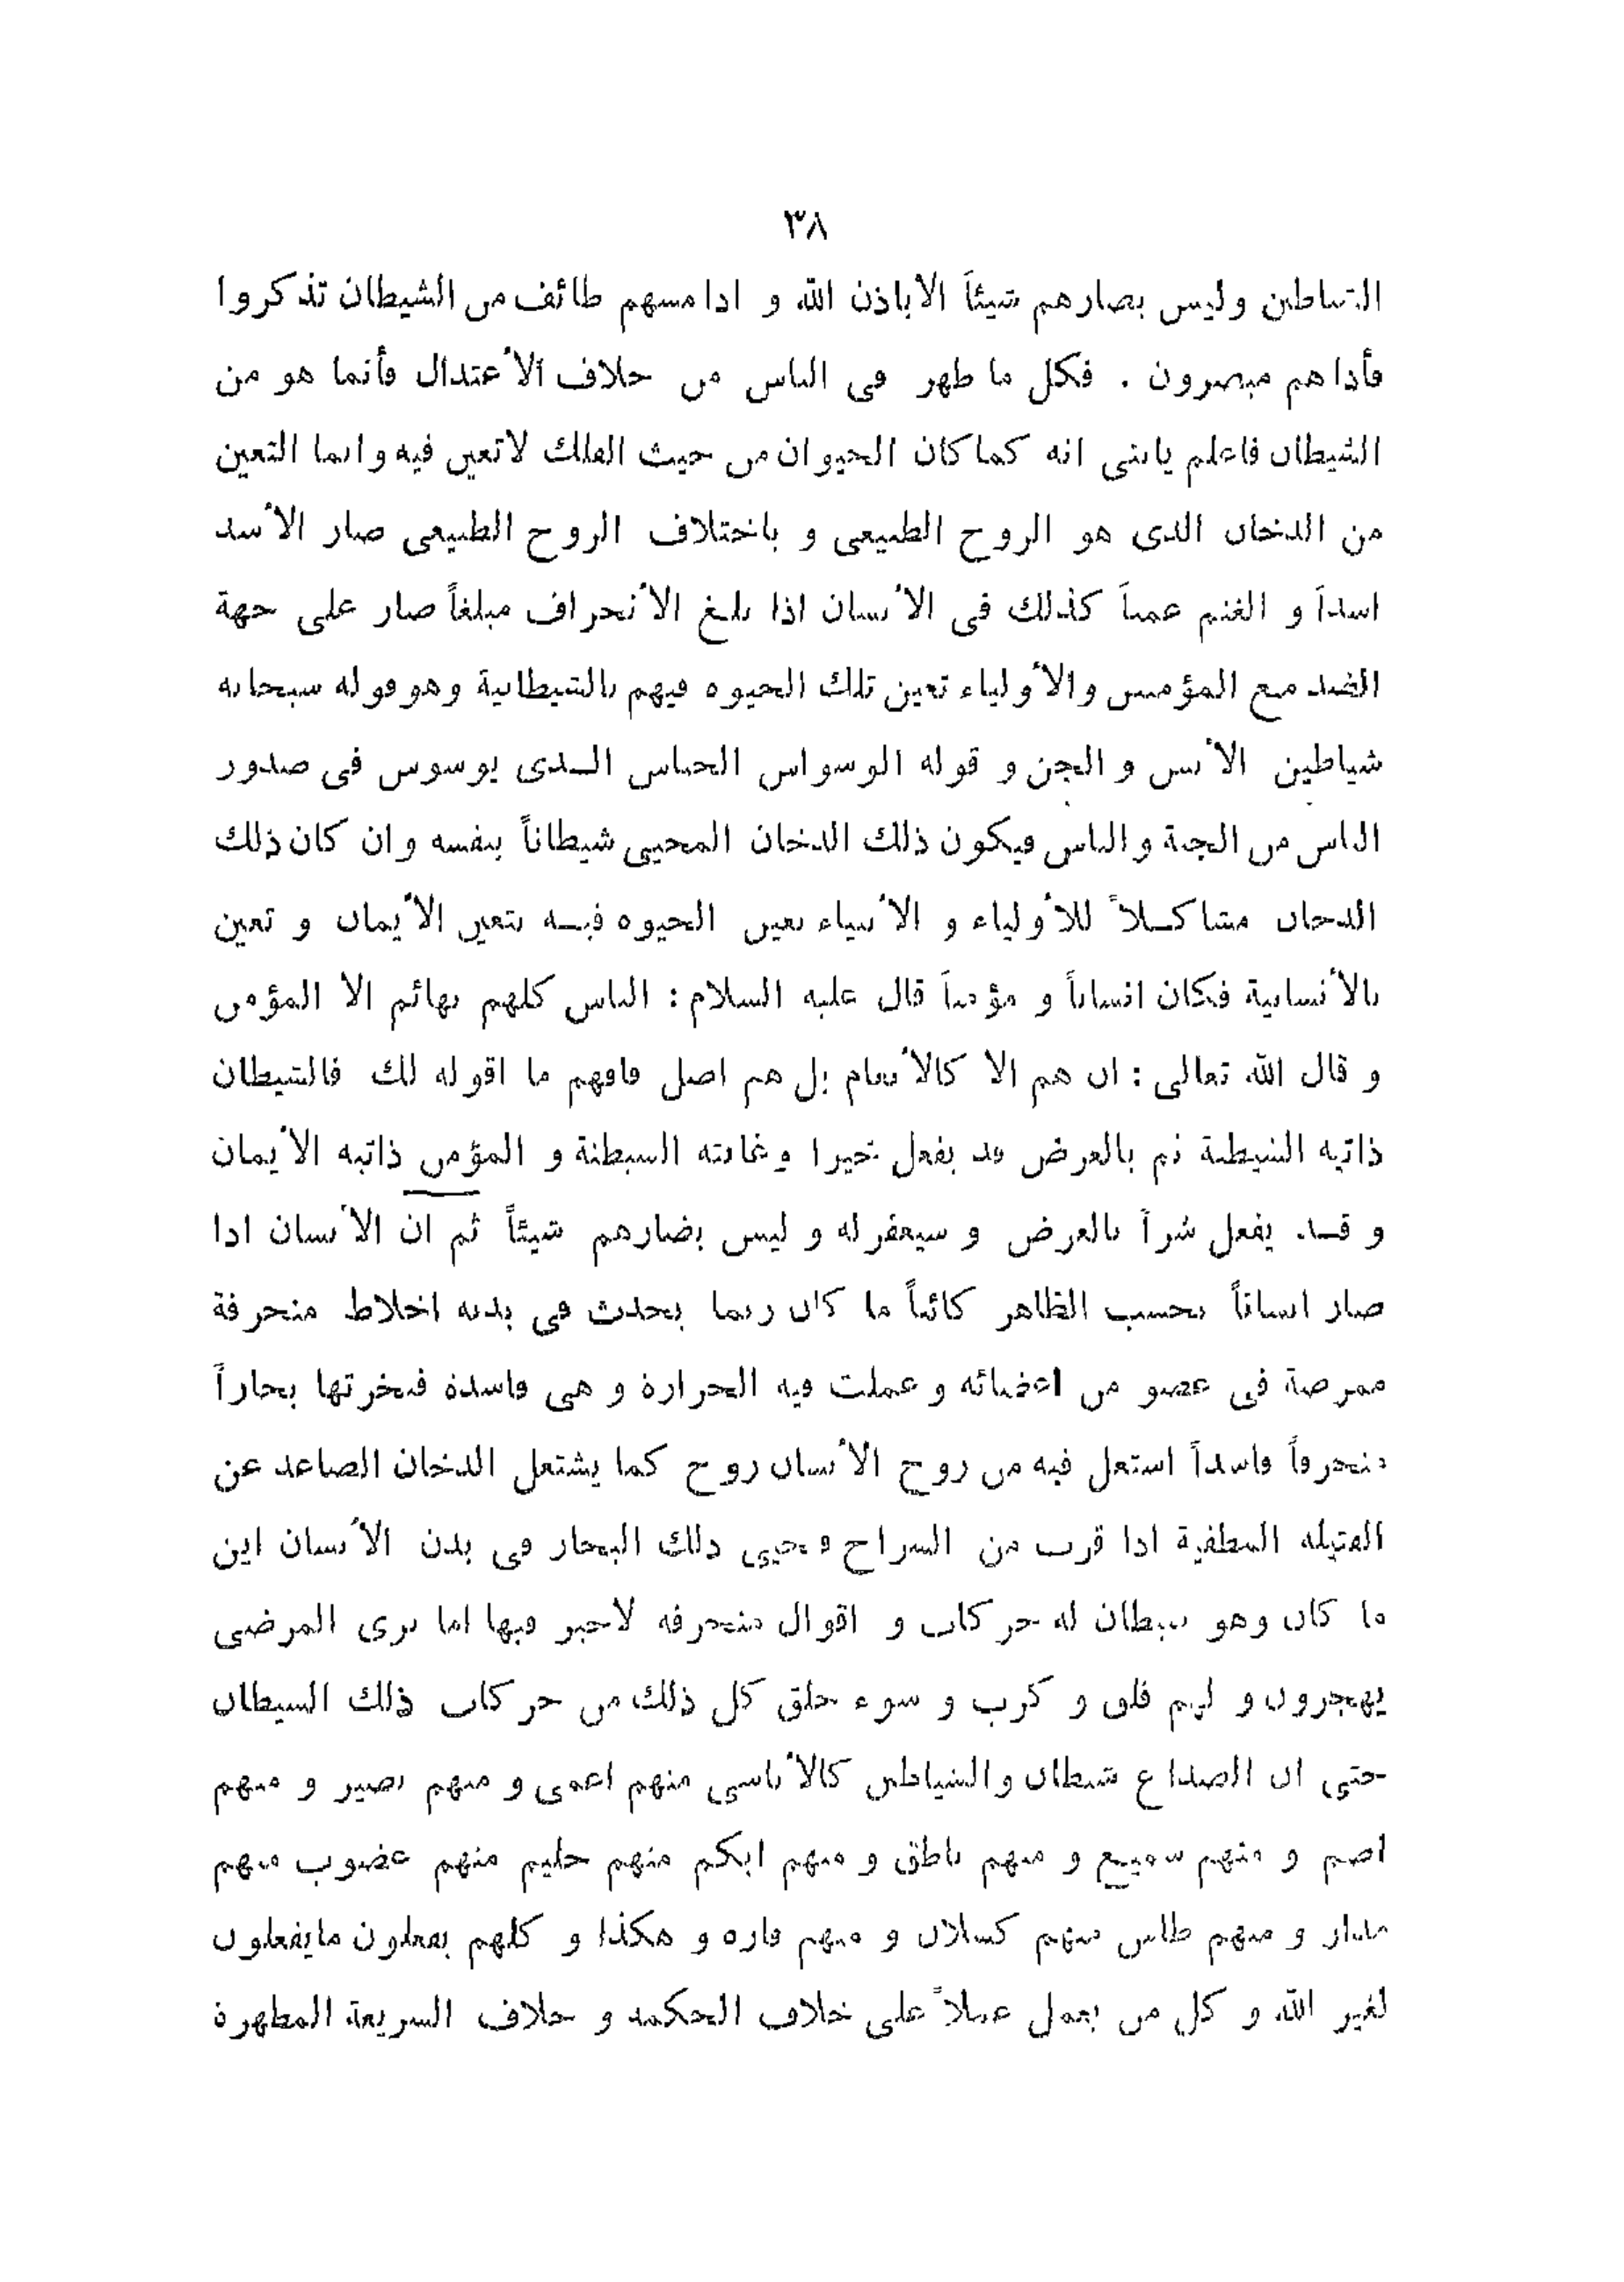 ٣٨
الشياطين وليس بضارهم شيئاً الاباذن الله و اذا مسهم طائف من الشيطان تذكروا
فأذا هم مبصرون . فكل ما ظهر فى الناس من خلاف الأعتدال فأنما هو من
الشيطان فاعلم يابنى انه كما كان الحيوان من حيث الفلك لاتعين فيه وانما التعين
من الدخان الذى هو الروح الطبيعى و باختلاف الروح الطبيعى صار الأسد
اسداً و الغنم غنماً كذلك فى الأنسان اذا بلغ الأنحراف مبلغاً صار على جهة
الضد مع المؤمنين والأولياء تعين تلك الحيوه فيهم بالشيطانية وهو قوله سبحانه
شياطين الأنس و الجن و قوله الوسواس الخناس الذى يوسوس فى صدور
الناس من الجنة والناس فيكون ذلك الدخان المحيى شيطاناً بنفسه وان كان ذلك
الدخان مشاكلاً للأولياء و الأنبياء تعين الحيوه فيه بتعين الأيمان و تعين
بالأنسانية فكان انساناً و مؤمناً قال عليه السلام : الناس كلهم بهائم الا المؤمن
و قال الله تعالى : ان هم الا كالأنعام بل هم اضل فافهم ما اقوله لك فالشيطان
ذاتيه الشيطنة ثم بالعرض قد يفعل خيرا وغايته الشيطنة و المؤمن ذاتيه الأيمان
و قد يفعل شراً بالعرض و سيغفر له و ليس بضارهم شيئاً ثم ان الأنسان اذا
صار انساناً بحسب الظاهر كائناً ما كان ربما يحدث فى بدنه اخلاط منحرفة
ممرضة فى عضو من اعضائه و عملت فيه الحرارة و هى فاسدة فبخرتها بخاراً
منحرفاً فاسداً اشتعل فيه من روح الأنسان روح كما يشتعل الدخان الصاعد عن
الفتيله المطفية اذا قرب من السراج فيحيى ذلك البخار فى بدن الأنسان اين
ما كان وهو شيطان له حركات و اقوال منحرفه لاخير فيها اما ترى المرضى
يهجرون و لهم قلق و كرب و سوء خلق كل ذلك من حركات ذلك الشيطان
حتى ان الصداع شيطان والشياطين كالأناسى منهم اعمى و منهم بصير و منهم
اصم و منهم سميع و منهم ناطق و منهم ابكم منهم حليم منهم غضوب منهم
و منهم منهم كسلان و منهم فاره و هكذا و كلهم يفعلون مايفعلون
لغير الله و كل من يعمل عملاً على خلاف الحكمه و خلاف الشريعة المطهرة